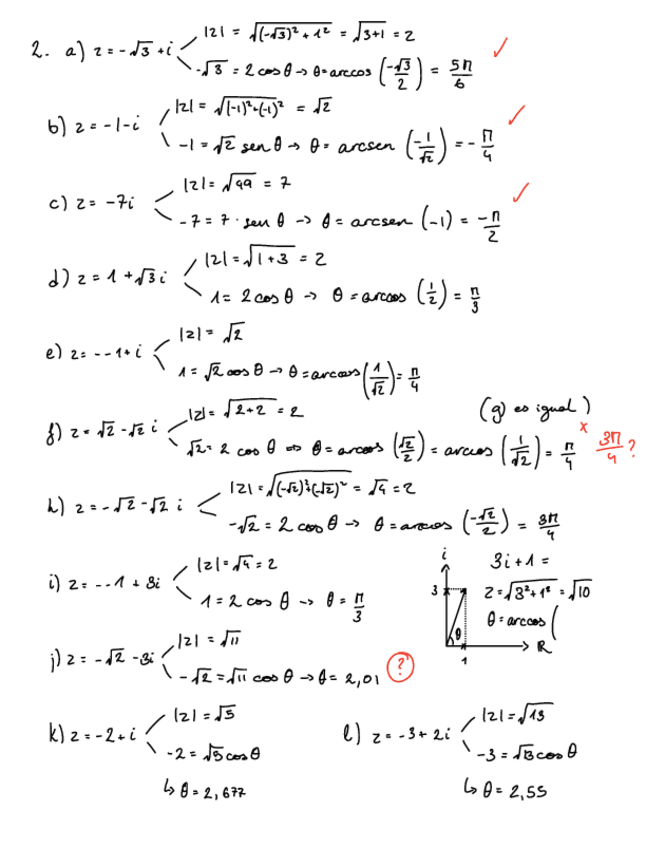 2. a) z = -√3 + i |z| = √((-√3)² + 1²) = √(3+1) = 2 ✓
-√3 = 2 cos θ → θ = arccos (-√3/2) = 5π/6
b) z = -1 - i |z| = √((-1)² + (-1)²) = √2 ✓
-1 = √2 sen θ → θ = arcsen (-1/√2) = -π/4
c) z = -7i |z| = √49 = 7 ✓
-7 = 7 · sen θ → θ = arcsen (-1) = -π/2
d) z = 1 + √3 i |z| = √(1+3) = 2
1 = 2 cos θ → θ = arcos (1/2) = π/3
e) z = --1 + i |z| = √2
1 = √2 cos θ → θ = arccos (1/√2) = π/4
f) z = √2 - √2 i |z| = √(2+2) = 2 (g) es igual)
√2 = 2 cos θ => θ = arccos (√2/2) = arccos (1/√2) = π/4 x 3π/4 ?
h) z = -√2 - √2 i |z| = √((-√2)² + (-√2)²) = √4 = 2
-√2 = 2 cos θ → θ = arccos (-√2/2) = 3π/4
i) z = --1 + 3i |z| = √4 = 2
1 = 2 cos θ → θ = π/3
i 3 θ 1 R
3i + 1 =
z = √(3² + 1²) = √10
θ = arccos (
j) z = -√2 - 3i |z| = √11
-√2 = √11 cos θ → θ = 2,01 ?
k) z = -2 + i |z| = √5
-2 = √5 cos θ
↳ θ = 2,677
l) z = -3 + 2i |z| = √13
-3 = √13 cos θ
↳ θ = 2,55